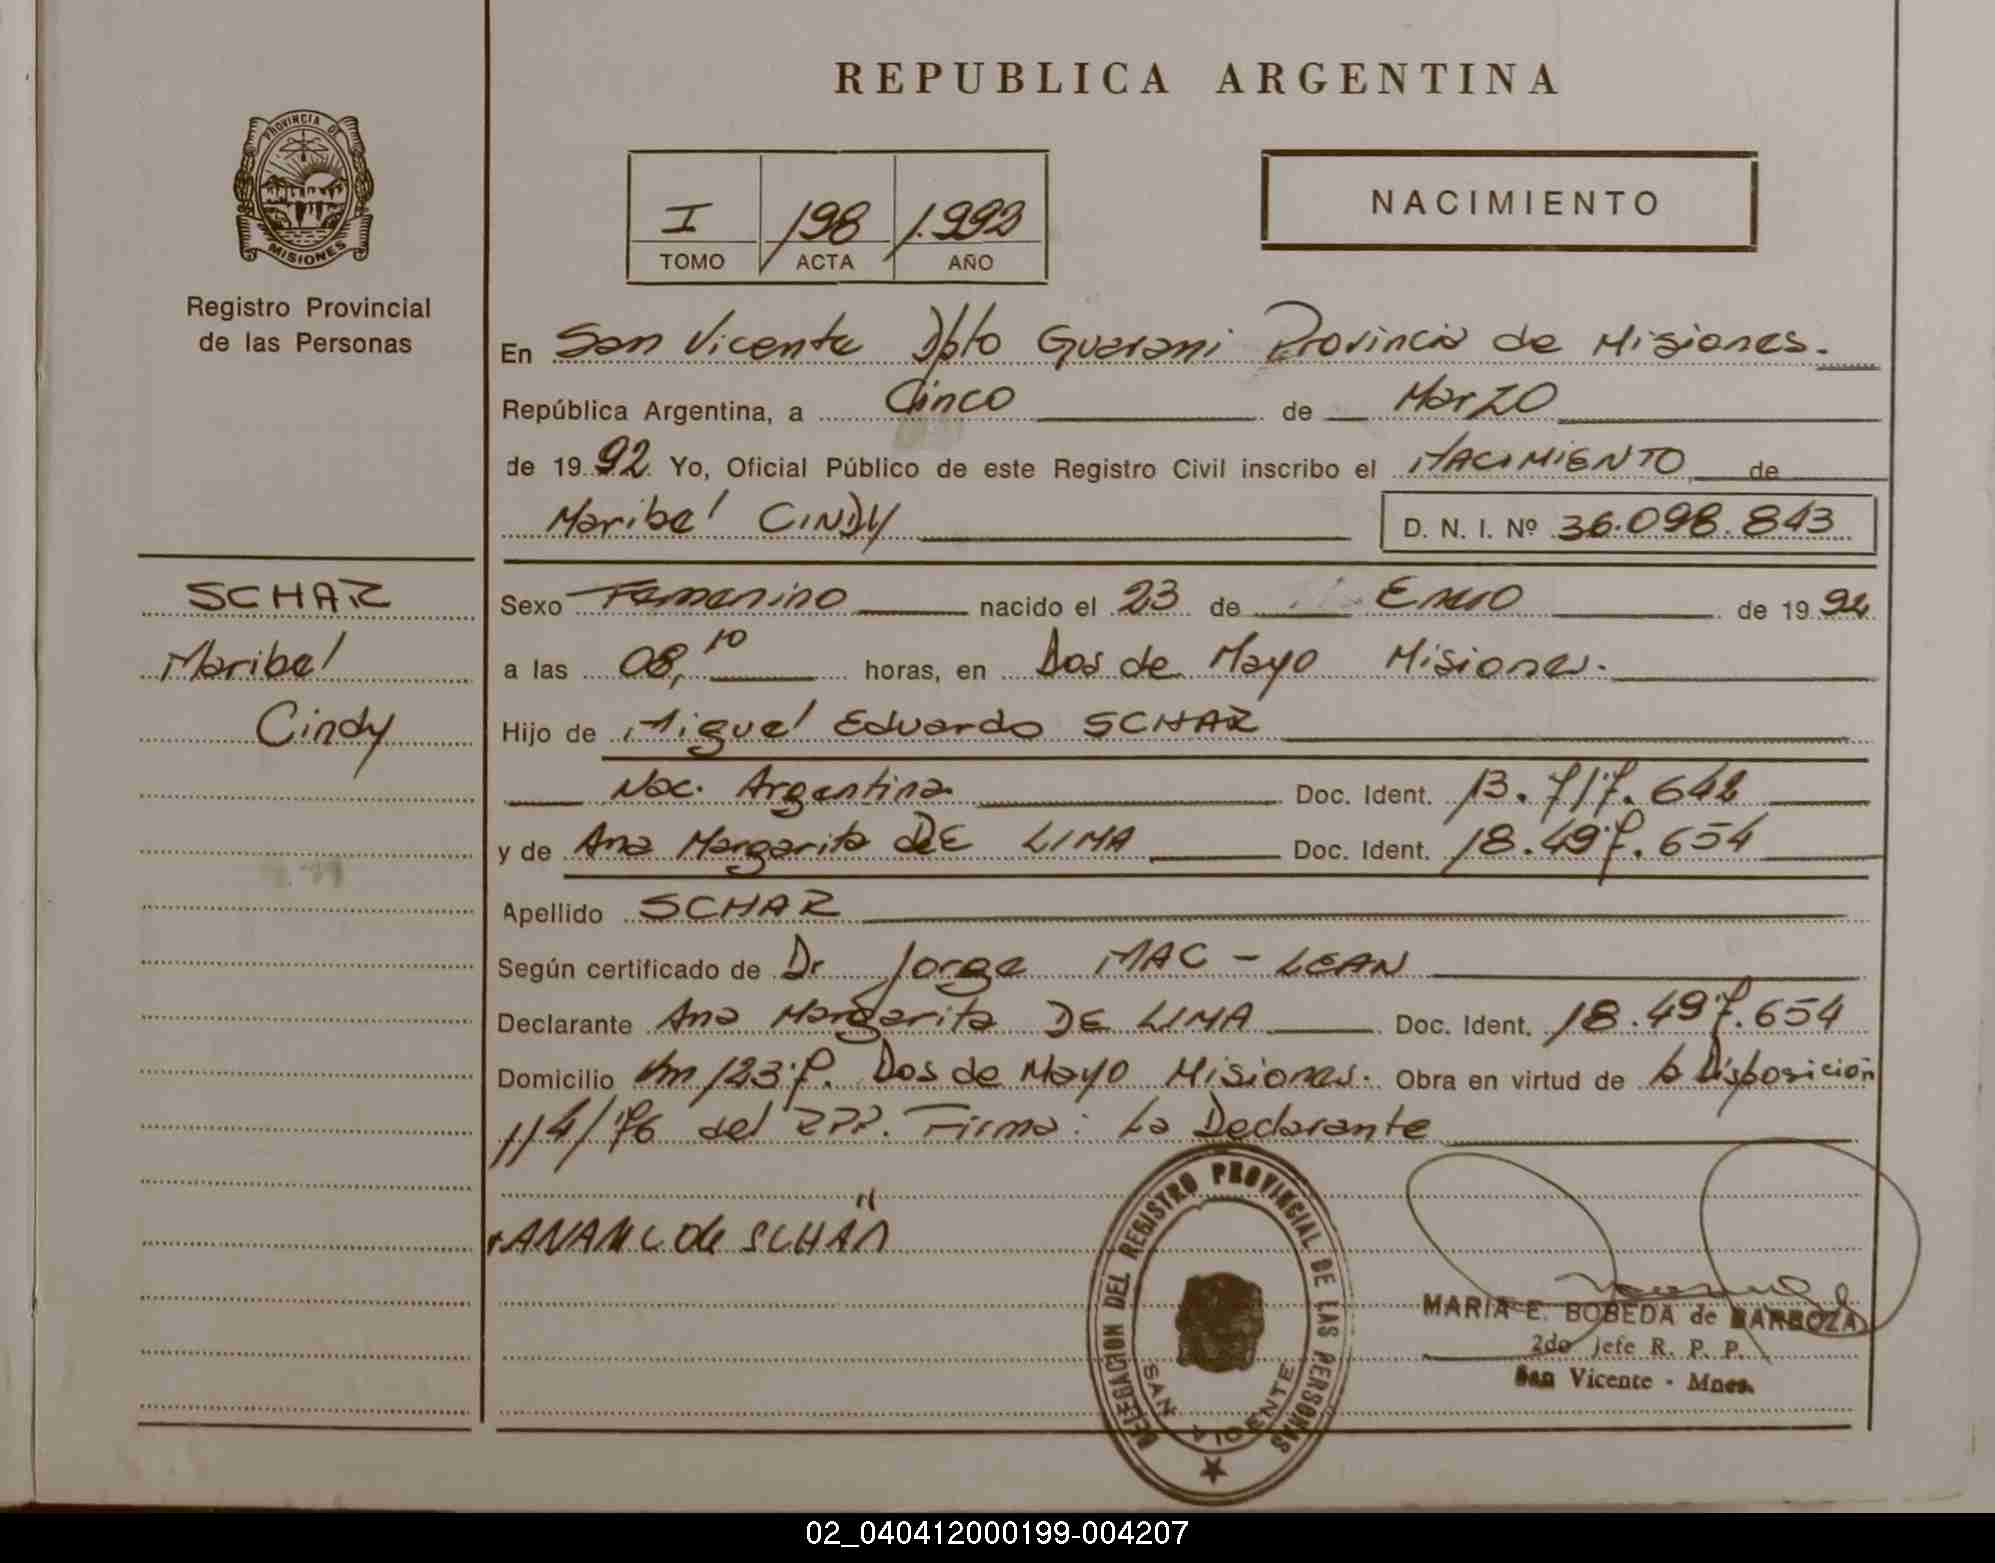 REPUBLICA ARGENTINA
PROVINCIA DE
MISIONES
Registro Provincial
de las Personas
I 198 1.992
TOMO ACTA AÑO
NACIMIENTO
En San Vicente Dpto Guarani Provincia de Misiones.
República Argentina, a Cinco de Marzo
de 1992. Yo, Oficial Público de este Registro Civil inscribo el NACIMIENTO de
Maribel CINDY D. N. I. Nº 36.098.843
SCHAR
Maribel
Cindy
Sexo Femenino nacido el 23 de Enero de 1992
a las 08,10 horas, en Dos de Mayo Misiones.
Hijo de Miguel Eduardo SCHAR
Nac. Argentina Doc. Ident. 13.717.642
y de Ana Margarita DE LIMA Doc. Ident. 18.497.654
Apellido SCHAR
Según certificado de Dr Jorge MAC - LEAN
Declarante Ana Margarita DE LIMA Doc. Ident. 18.497.654
Domicilio Km 1237. Dos de Mayo Misiones. Obra en virtud de la Disposición
114/76 del RPP. Firma: La Declarante
de SCHÄR
DELEGACION DEL REGISTRO PROVINCIAL DE LAS PERSONAS
SAN VICENTE
MARIA E. BOBEDA de BARBOZA
2do Jefe R. P. P.
San Vicente - Mnes.
02_040412000199-004207